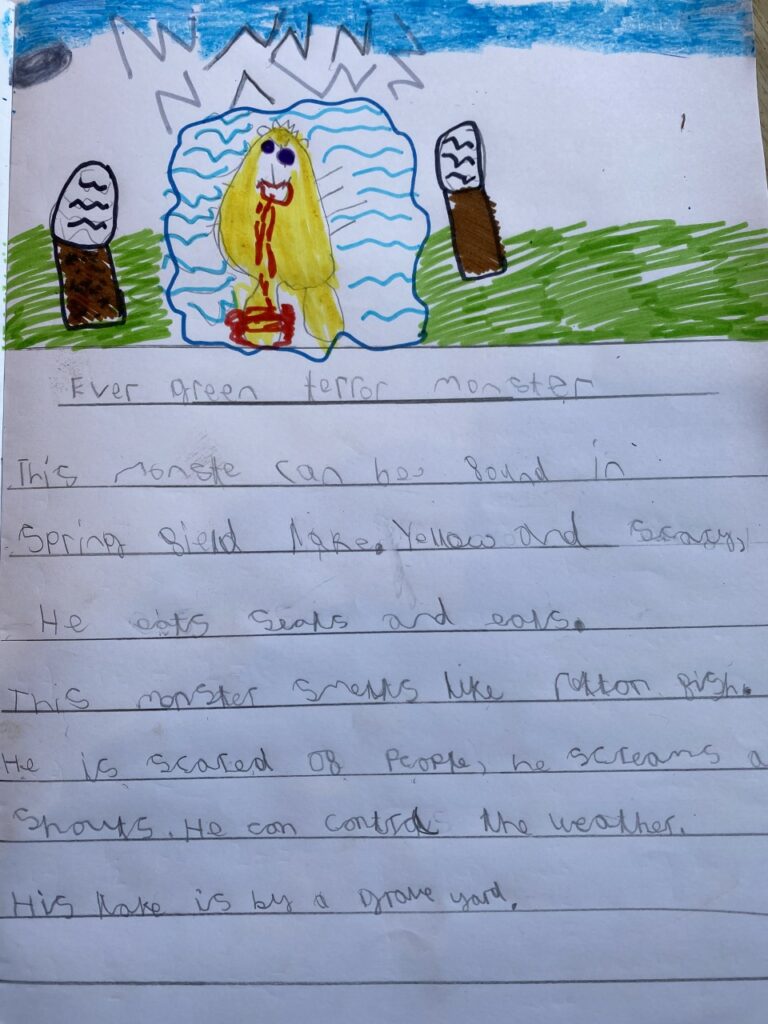 Ever green terror monster
This monste can found in
Spring field lake. Yellow and scary,
He eats seals and eals.
This monster smells like rotton fish.
He is scared of people, he screams a
shouts. He can control the weather.
His lake is by a grave yard.